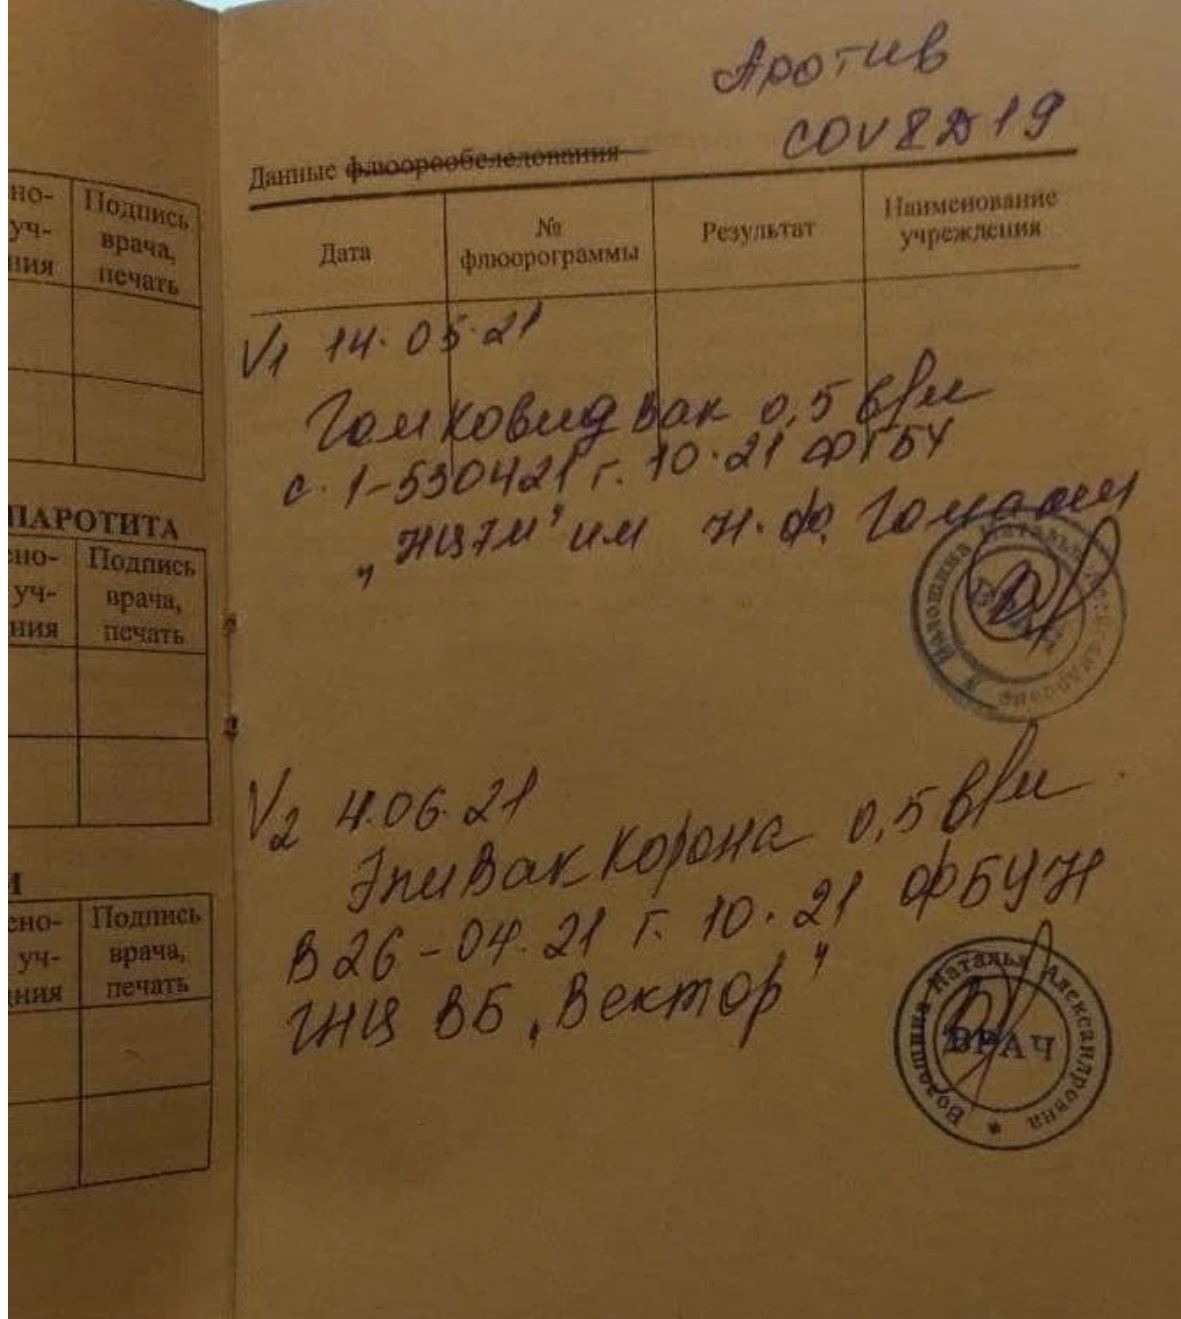 но-
уч-
ния
Подпись
врача,
печать
ПАРОТИТА
но-
уч-
ния
Подпись
врача,
печать
но-
уч-
ния
Подпись
врача,
печать
Против
COV8D19
Данные флюорообследования
Дата
№
флюорограммы
Результат
Наименование
учреждения
V1 14.05.21
Гамковидвак 0,5 в/м
с. 1-530421 г. 10.21 ФГБУ
„НЦЭМ" им Н.Ф. Гамалеи
Наталья
V2 4.06.21
ЭпиВакКорона 0,5 в/м
В26-04.21 г. 10.21 ФБУН
ГНЦ ВБ „Вектор"
Наталья Александровна
ВРАЧ